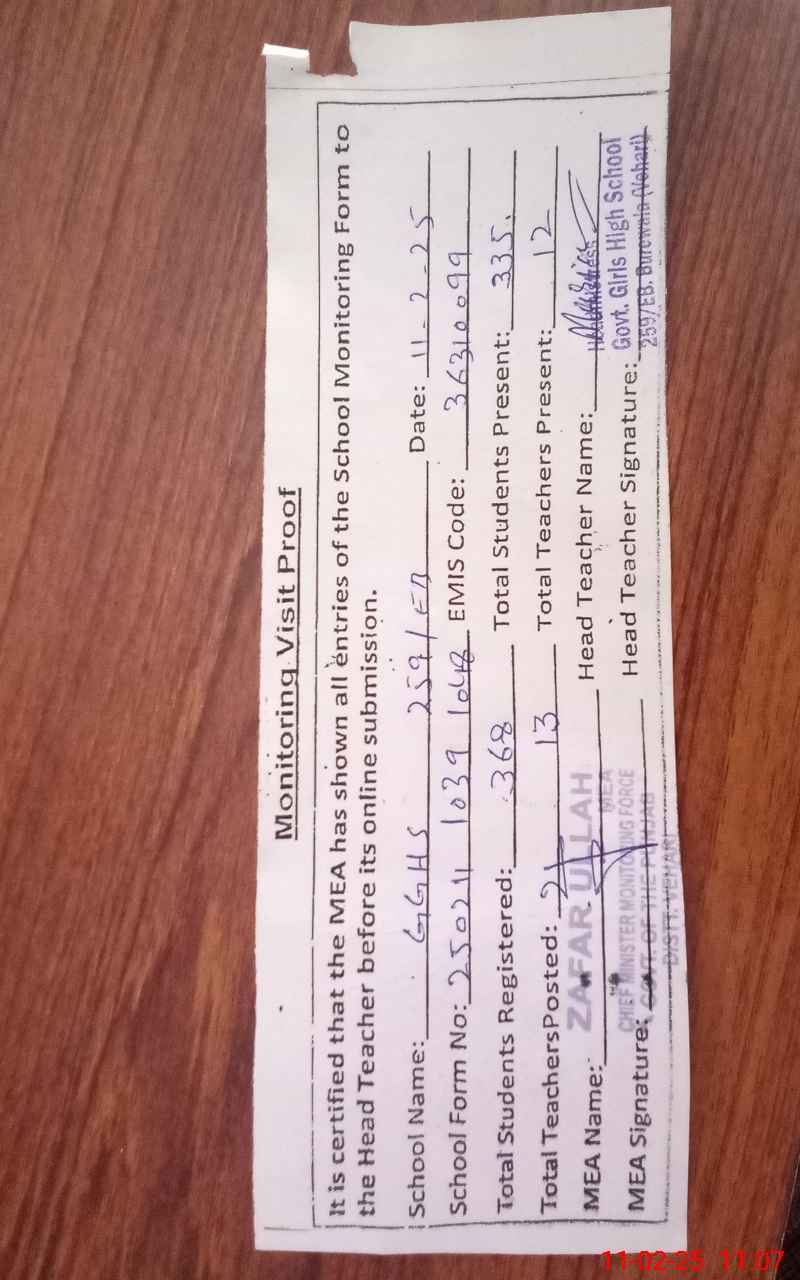 Monitoring Visit Proof
It is certified that the MEA has shown all entries of the School Monitoring Form to
the Head Teacher before its online submission.
School Name: GGHS 259/EB Date: 11-2-25
School Form No: 250211 1039 1048 EMIS Code: 36310099
Total Students Registered: 368 Total Students Present: 335.
Total TeachersPosted: 13 Total Teachers Present: 12
MEA Name: ZAFAR ULLAH Head Teacher Name: Headmistress
MEA
MEA Signature: Head Teacher Signature:
CHIEF MINISTER MONITORING FORCE
GOVT. OF THE PUNJAB
DISTT. VEHARI
Govt. Girls High School
259/EB. Burewala (Vehari)
11-02-25 11:07